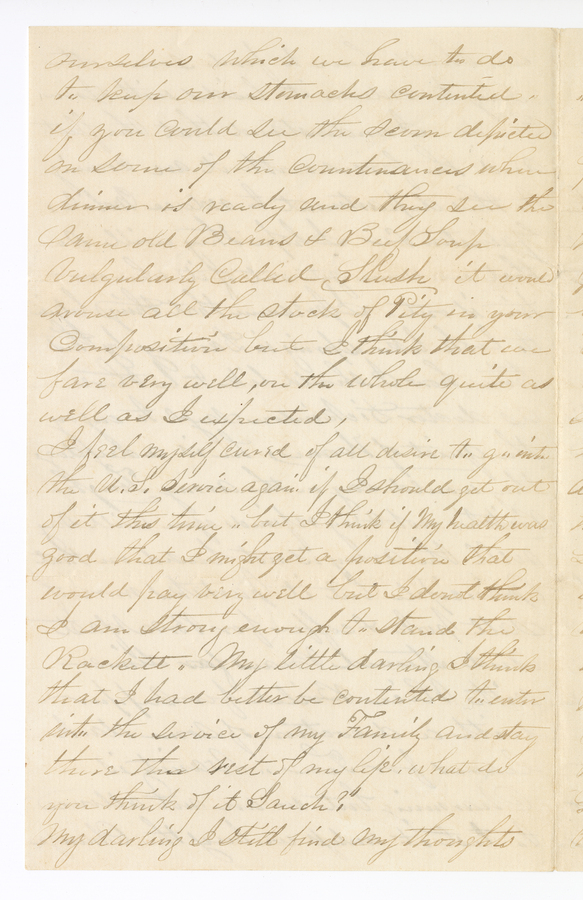 ourselves which we have to do
to keep our stomachs contented.
if you could see the scorn depicted
on some of the countenances when
dinner is ready and they see the
same old Beans & Beef Soup
vulgularly Called Slush it would
arouse all the stock of Pity in your
Composition but I think that we
fare very well, on the whole quite as
well as I expected,
I feel myself cured of all desire to go into
the U.S. Service again if I should get out
of it this time, but I think if My health was
good that I might get a position that
would pay very well but I dont think
I am strong enough to stand the
Rackett. My little darling I think
that I had better be contented to enter
into the service of my Family and stay
there the rest of my life. what do
you think of it
My darling I still find my thoughts